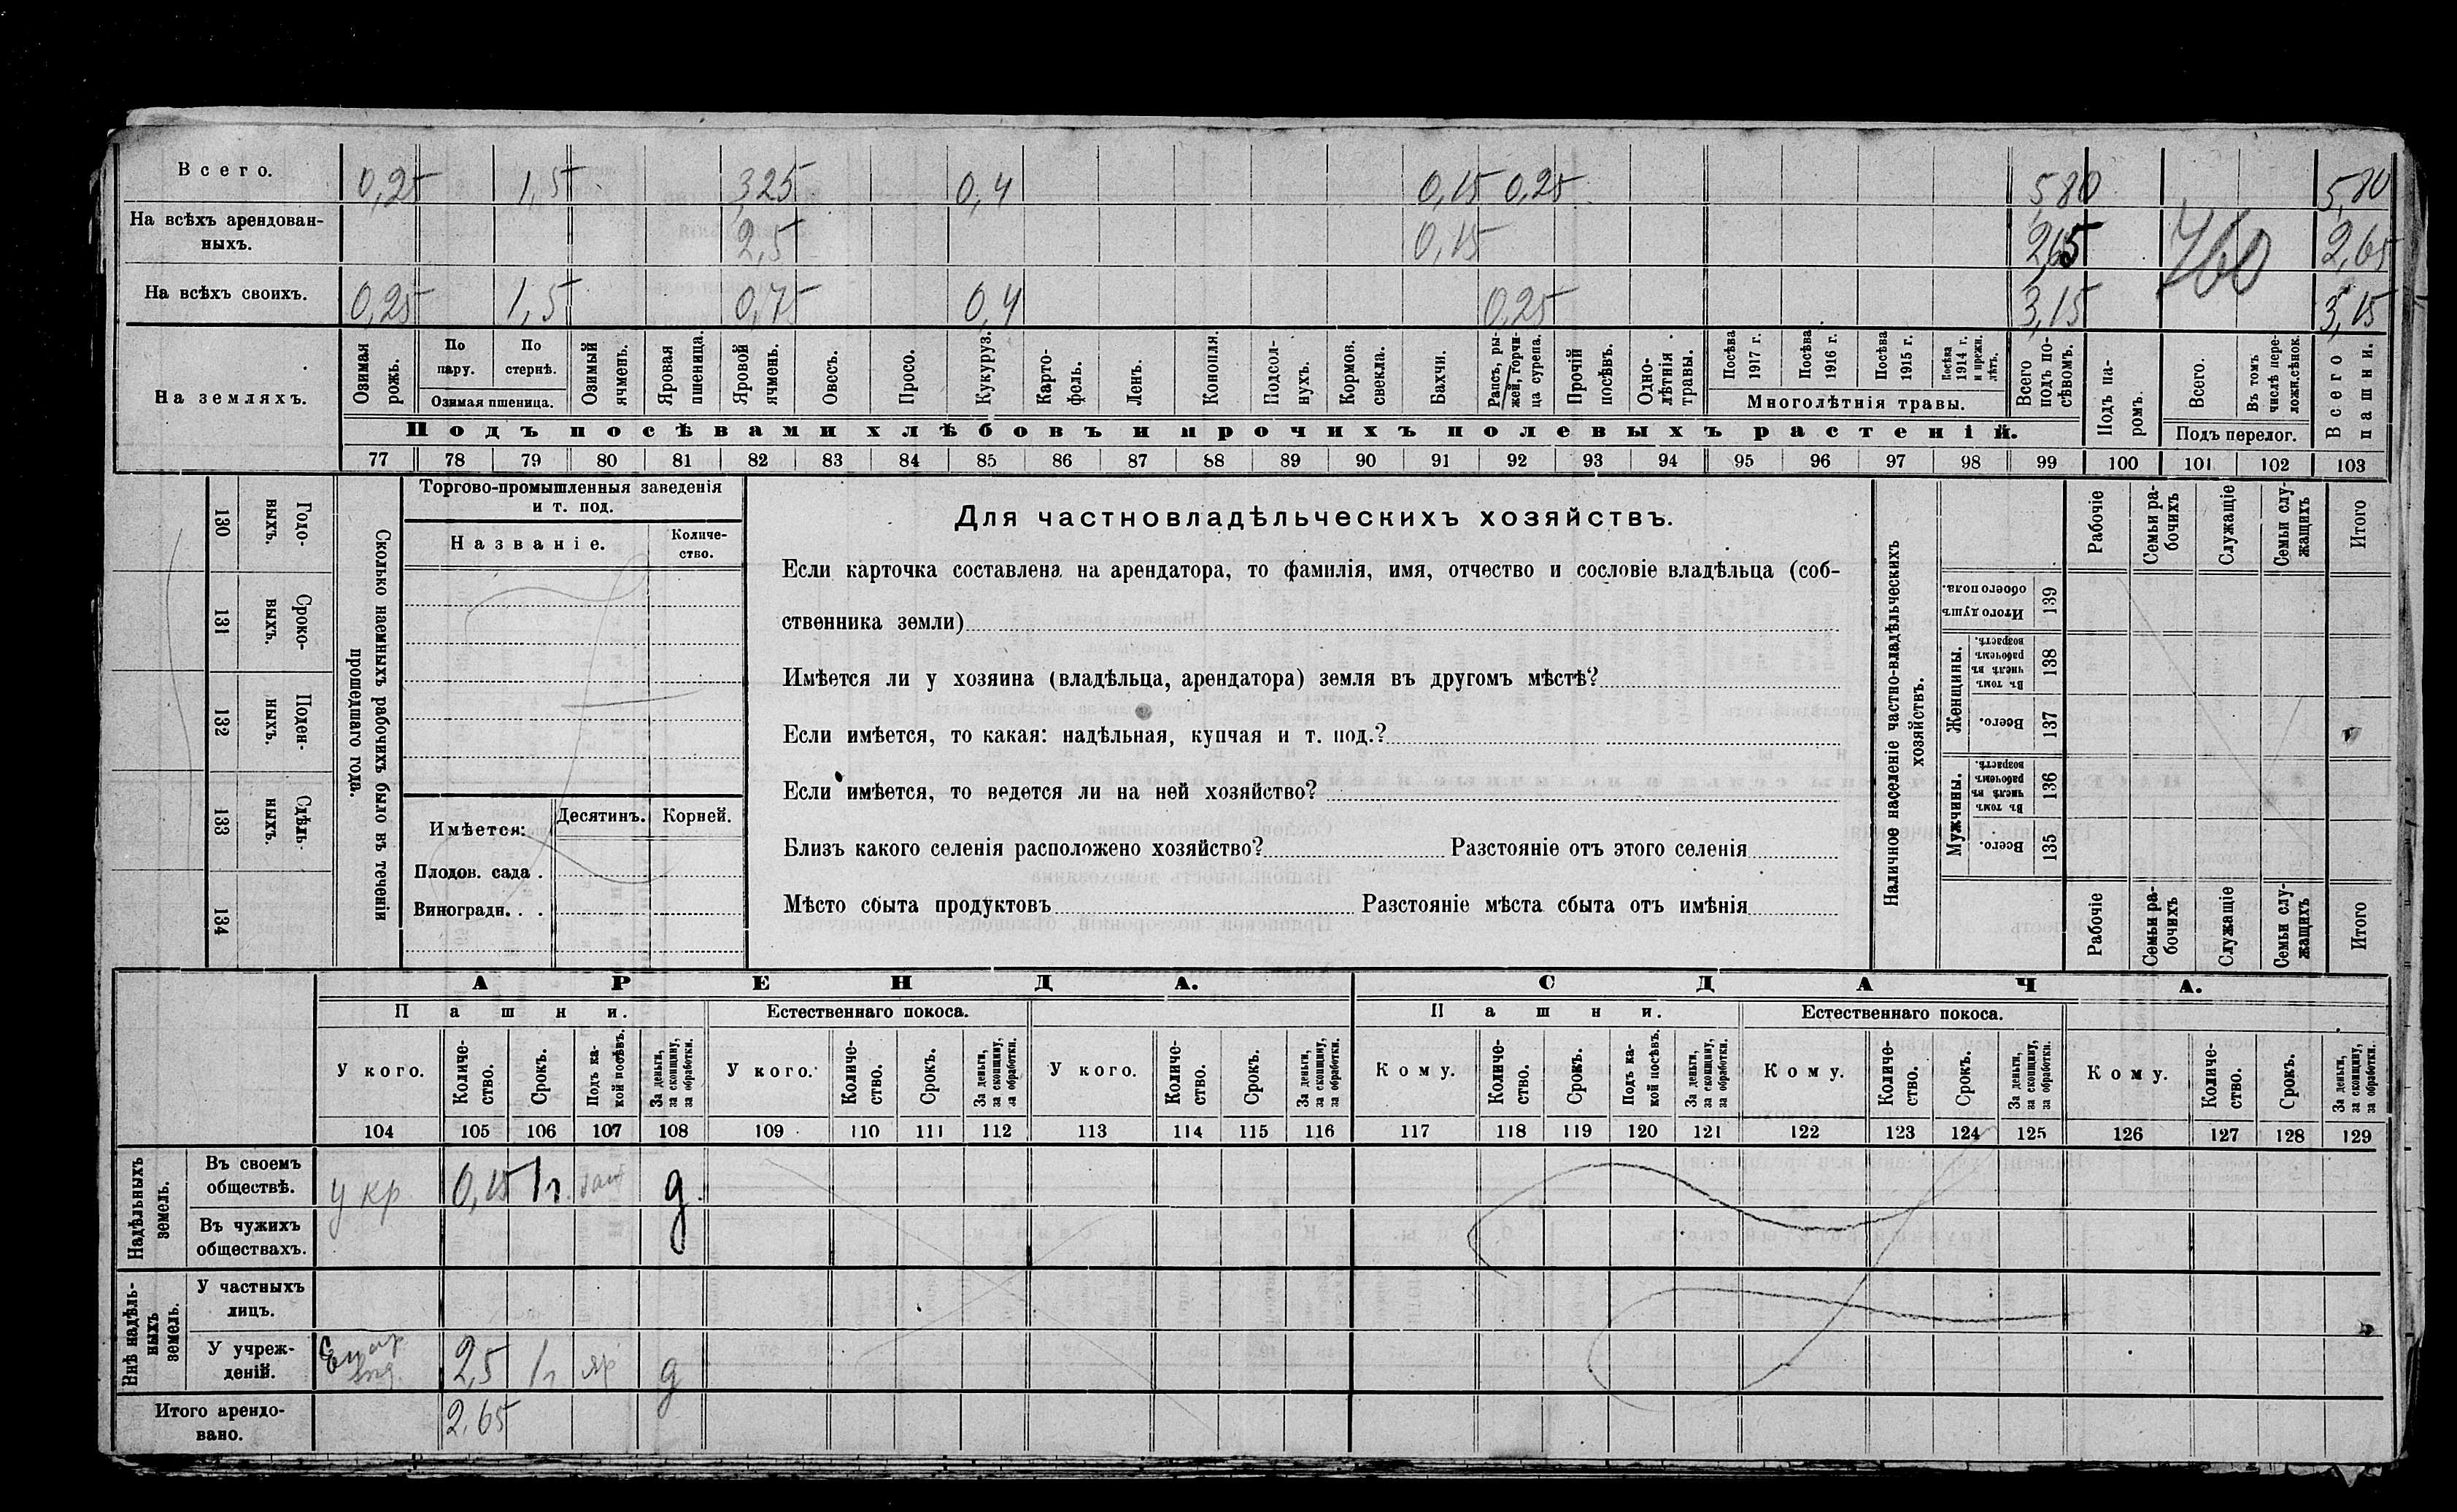 Всего. 0,25 1,5 3,25 0,4 0,15 0,25 5,80 5,80
На всѣхъ арендован-
ныхъ. 2,5 0,15 2,65 760 2,65
На всѣхъ своихъ. 0,25 1,5 0,75 0,4 0,25 3,15 3,15
На земляхъ.
Озимая рожь.
По пару.
По стернѣ.
Озимая пшеница.
Озимый ячмень.
Яровая пшеница.
Яровой ячмень.
Овесъ.
Просо.
Кукуруз.
Карто-
фель.
Ленъ.
Конопля.
Подсол-
нухъ.
Кормов. свекла.
Бахчи.
Рапсъ, ры-
жей, горчи-
ца сурепа.
Прочій посѣвъ.
Одно-
лѣтнія травы.
Посѣва 1917 г.
Посѣва 1916 г.
Посѣва 1915 г.
Посѣва 1914 г. и прежн. лѣтъ.
Многолѣтнія травы.
Всего подъ по-
сѣвомъ.
Подъ па-
ромъ.
Всего.
Въ томъ числѣ пере-
ложн.сѣнок.
Подъ перелог.
Всего пашни.
Подъ посѣвами хлѣбовъ и прочихъ полевыхъ растеній.
77 78 79 80 81 82 83 84 85 86 87 88 89 90 91 92 93 94 95 96 97 98 99 100 101 102 103
130 Годо-
выхъ.
131 Сроко-
выхъ.
132 Поден-
ныхъ.
133 Сдѣль-
ныхъ.
134
Сколько наемныхъ рабочихъ было въ теченіи
прошедшаго года.
Торгово-промышленныя заведенія
и т. под.
Названіе.
Количе-
ство.
Имѣется:
Десятинъ. Корней.
Плодов. сада .
Виноградн. . .
Для частновладѣльческихъ хозяйствъ.
Если карточка составлена на арендатора, то фамилія, имя, отчество и сословіе владѣльца (соб-
ственника земли)
Имѣется ли у хозяина (владѣльца, арендатора) земля въ другомъ мѣстѣ?
Если имѣется, то какая: надѣльная, купчая и т. под.?
Если имѣется, то ведется ли на ней хозяйство?
Близъ какого селенія расположено хозяйство? Разстояніе отъ этого селенія
Мѣсто сбыта продуктовъ Разстояніе мѣста сбыта отъ имѣнія
Наличное населеніе частно-владѣльческихъ
хозяйствъ.
Рабочіе
Семьи ра-
бочихъ
Служащіе
Семьи слу-
жащихъ
Итого
Итого душъ обоего пола. 139
Женщины.
Въ томъ числѣ въ рабочемъ возрастѣ. 138
Всего. 137
Мужчины.
Въ томъ числѣ въ рабочемъ возрастѣ. 136
Всего. 135
Рабочіе
Семьи ра-
бочихъ
Служащіе
Семьи слу-
жащихъ
Итого
АРЕНДА. СДАЧА.
Пашни. Естественнаго покоса. Пашни. Естественнаго покоса.
У кого.
Количе-
ство.
Срокъ.
Подъ ка-
кой посѣвъ.
За деньги,
за скопщину,
за обработки.
У кого.
Количе-
ство.
Срокъ.
За деньги,
за скопщину,
за обработки.
У кого.
Количе-
ство.
Срокъ.
За деньги,
за скопщину,
за обработки.
Кому.
Количе-
ство.
Срокъ.
Подъ ка-
кой посѣвъ.
За деньги,
за скопщину,
за обработки.
Кому.
Количе-
ство.
Срокъ.
За деньги,
за скопщину,
за обработки.
Кому.
Количе-
ство.
Срокъ.
За деньги,
за скопщину,
за обработки.
104 105 106 107 108 109 110 111 112 113 114 115 116 117 118 119 120 121 122 123 124 125 126 127 128 129
Надѣльныхъ
земель.
Въ своемъ
обществѣ. у кр. 0,15 1 г. д.
Въ чужихъ
обществахъ.
Внѣ надѣль-
ныхъ
земель.
У частныхъ
лицъ.
У учреж-
деній. 2,5 1 г яр д
Итого арендо-
вано. 2,65